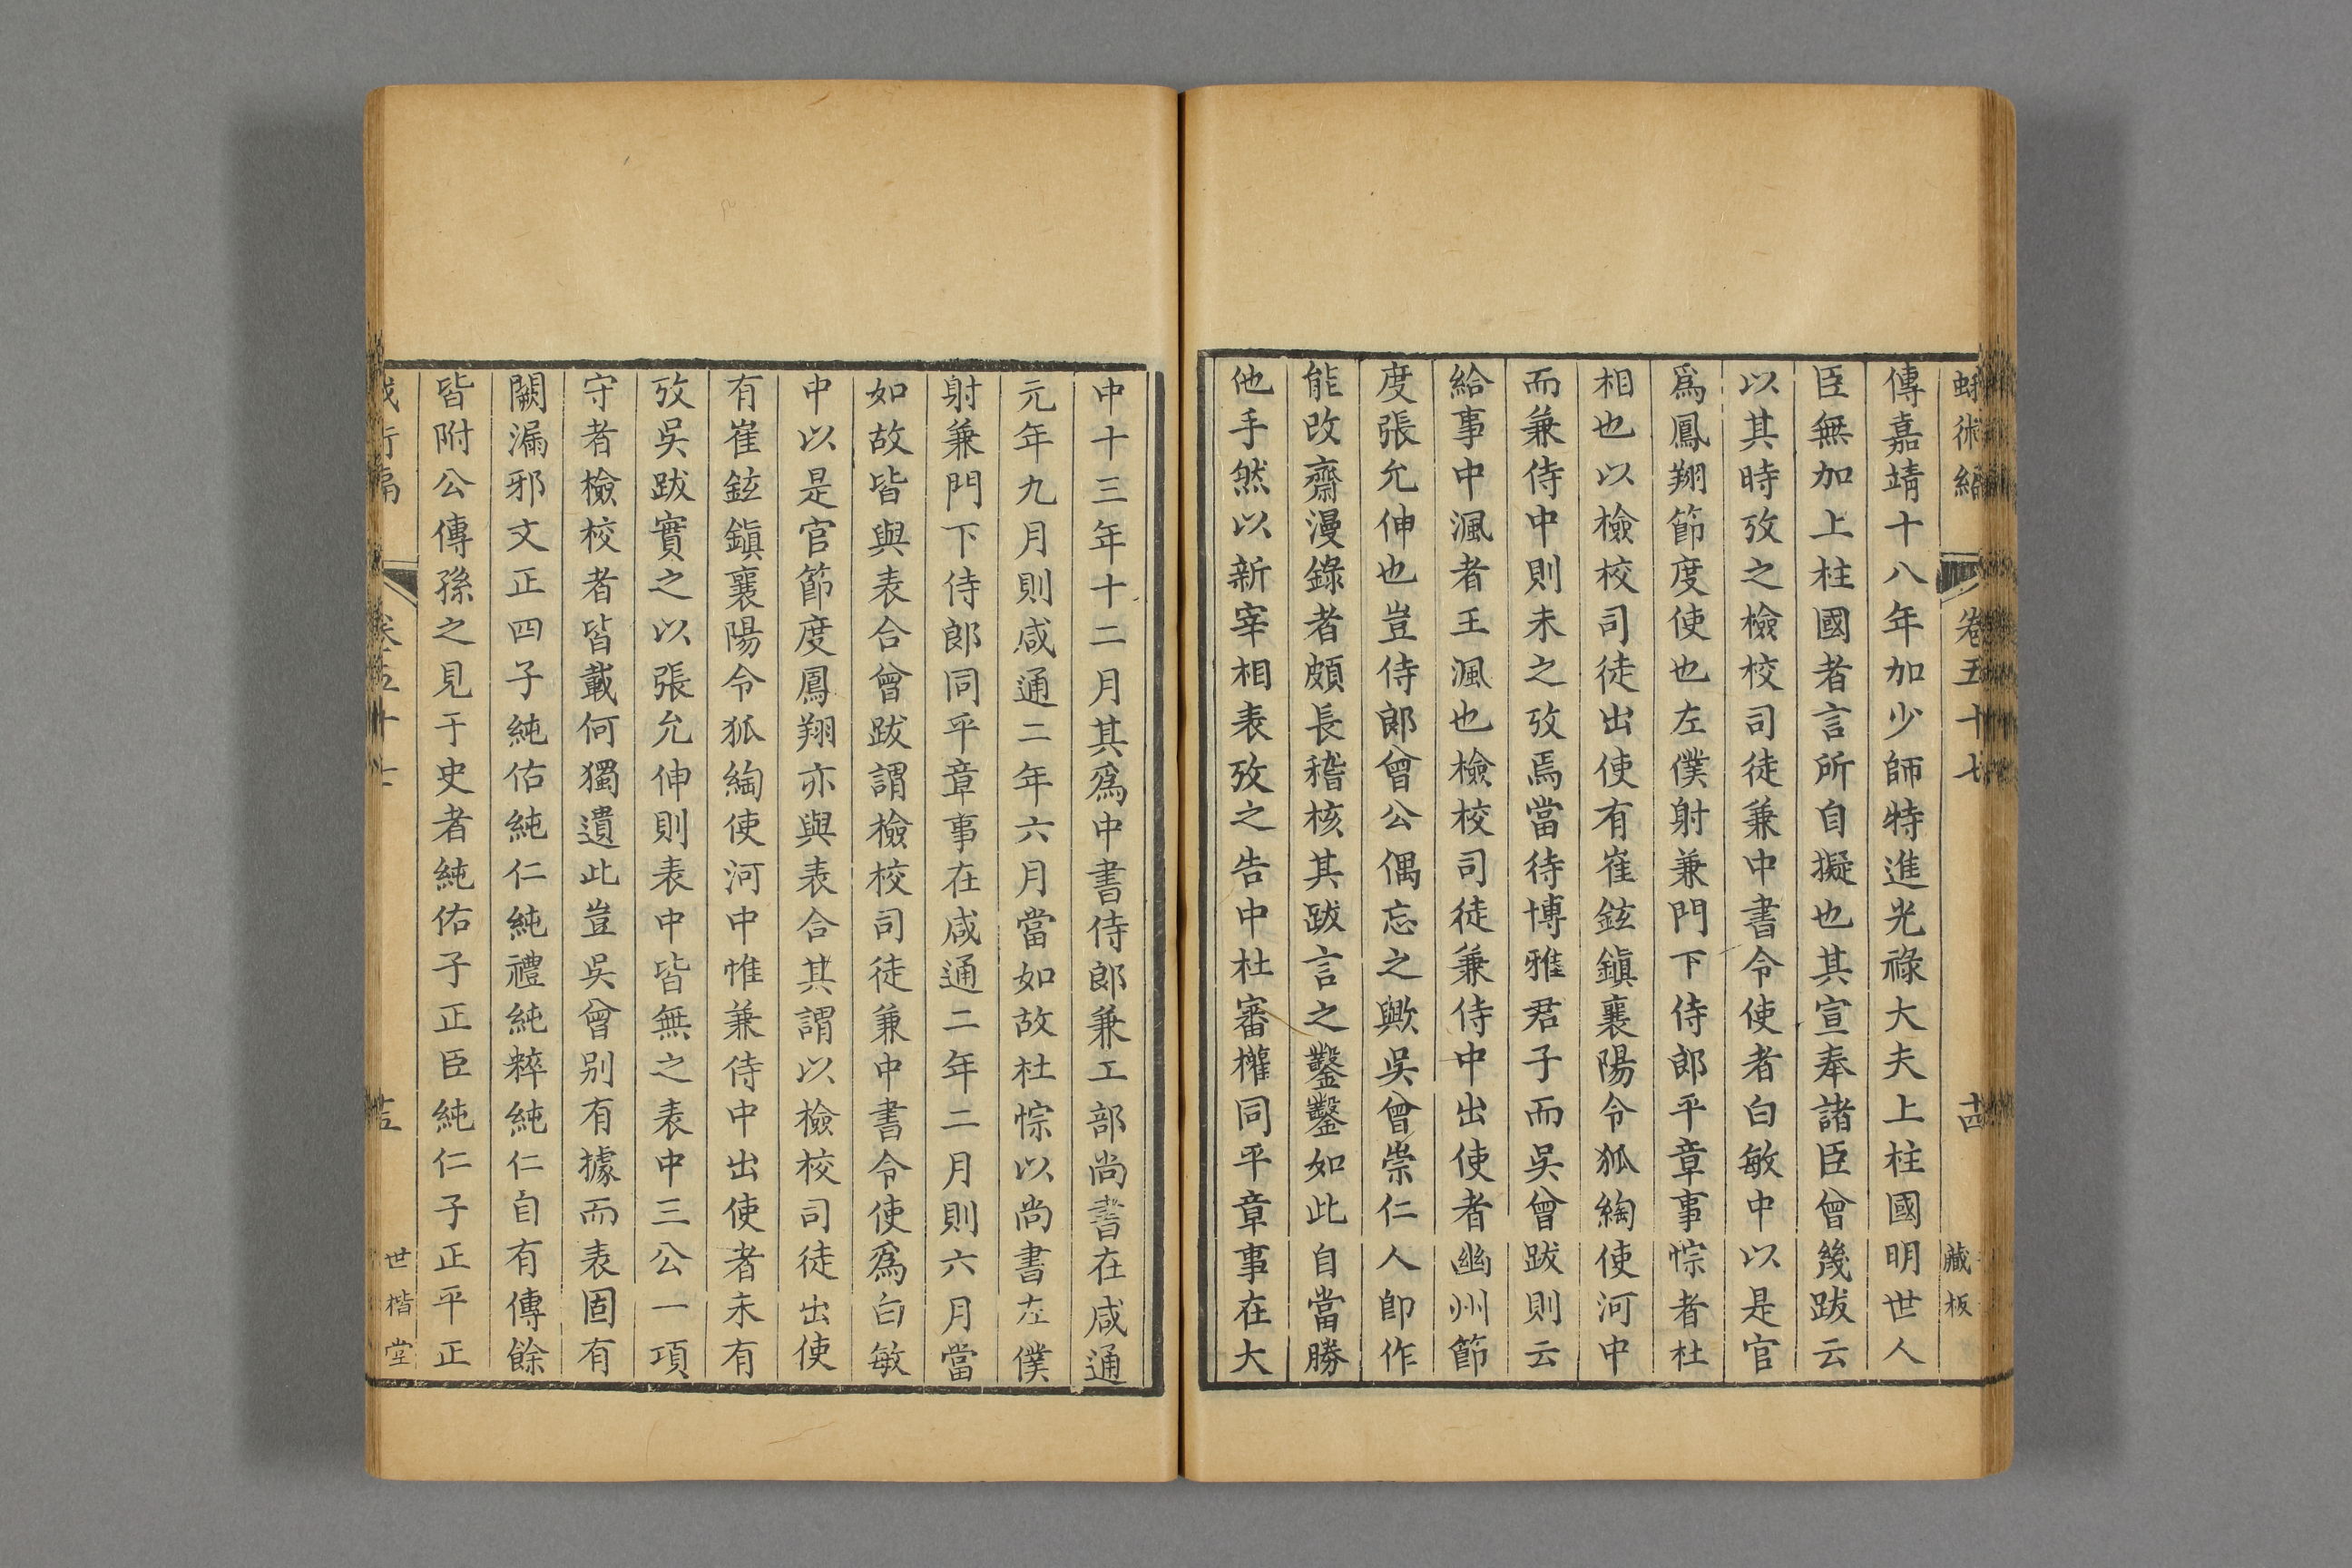 蛾術編 卷五十七 十四 藏板
傳嘉靖十八年加少師特進光祿大夫上柱國明世人
臣無加上柱國者言所自擬也其宣奉諸臣曾幾跋云
以其時攷之檢校司徒兼中書令使者白敏中以是官
爲鳳翔節度使也左僕射兼門下侍郎平章事悰者杜
相也以檢校司徒出使有崔鉉鎭襄陽令狐綯使河中
而兼侍中則未之攷焉當待博雅君子而吳曾跋則云
給事中渢者王渢也檢校司徒兼侍中出使者幽州節
度張允伸也豈侍郎曾公偶忘之歟吳曾崇仁人卽作
能改齋漫錄者頗長稽核其跋言之鑿鑿如此自當勝
他手然以新宰相表攷之告中杜審權同平章事在大
中十三年十二月其爲中書侍郎兼工部尚書在咸通
元年九月則咸通二年六月當如故杜悰以尚書左僕
射兼門下侍郎同平章事在咸通二年二月則六月當
如故皆與表合曾跋謂檢校司徒兼中書令使爲白敏
中以是官節度鳳翔亦與表合其謂以檢校司徒出使
有崔鉉鎭襄陽令狐綯使河中惟兼侍中出使者未有
攷吳跋實之以張允伸則表中皆無之表中三公一項
守者檢校者皆載何獨遺此豈吳曾别有據而表固有
闕漏邪文正四子純佑純仁純禮純粹純仁自有傳餘
皆附公傳孫之見于史者純佑子正臣純仁子正平正
世楷堂